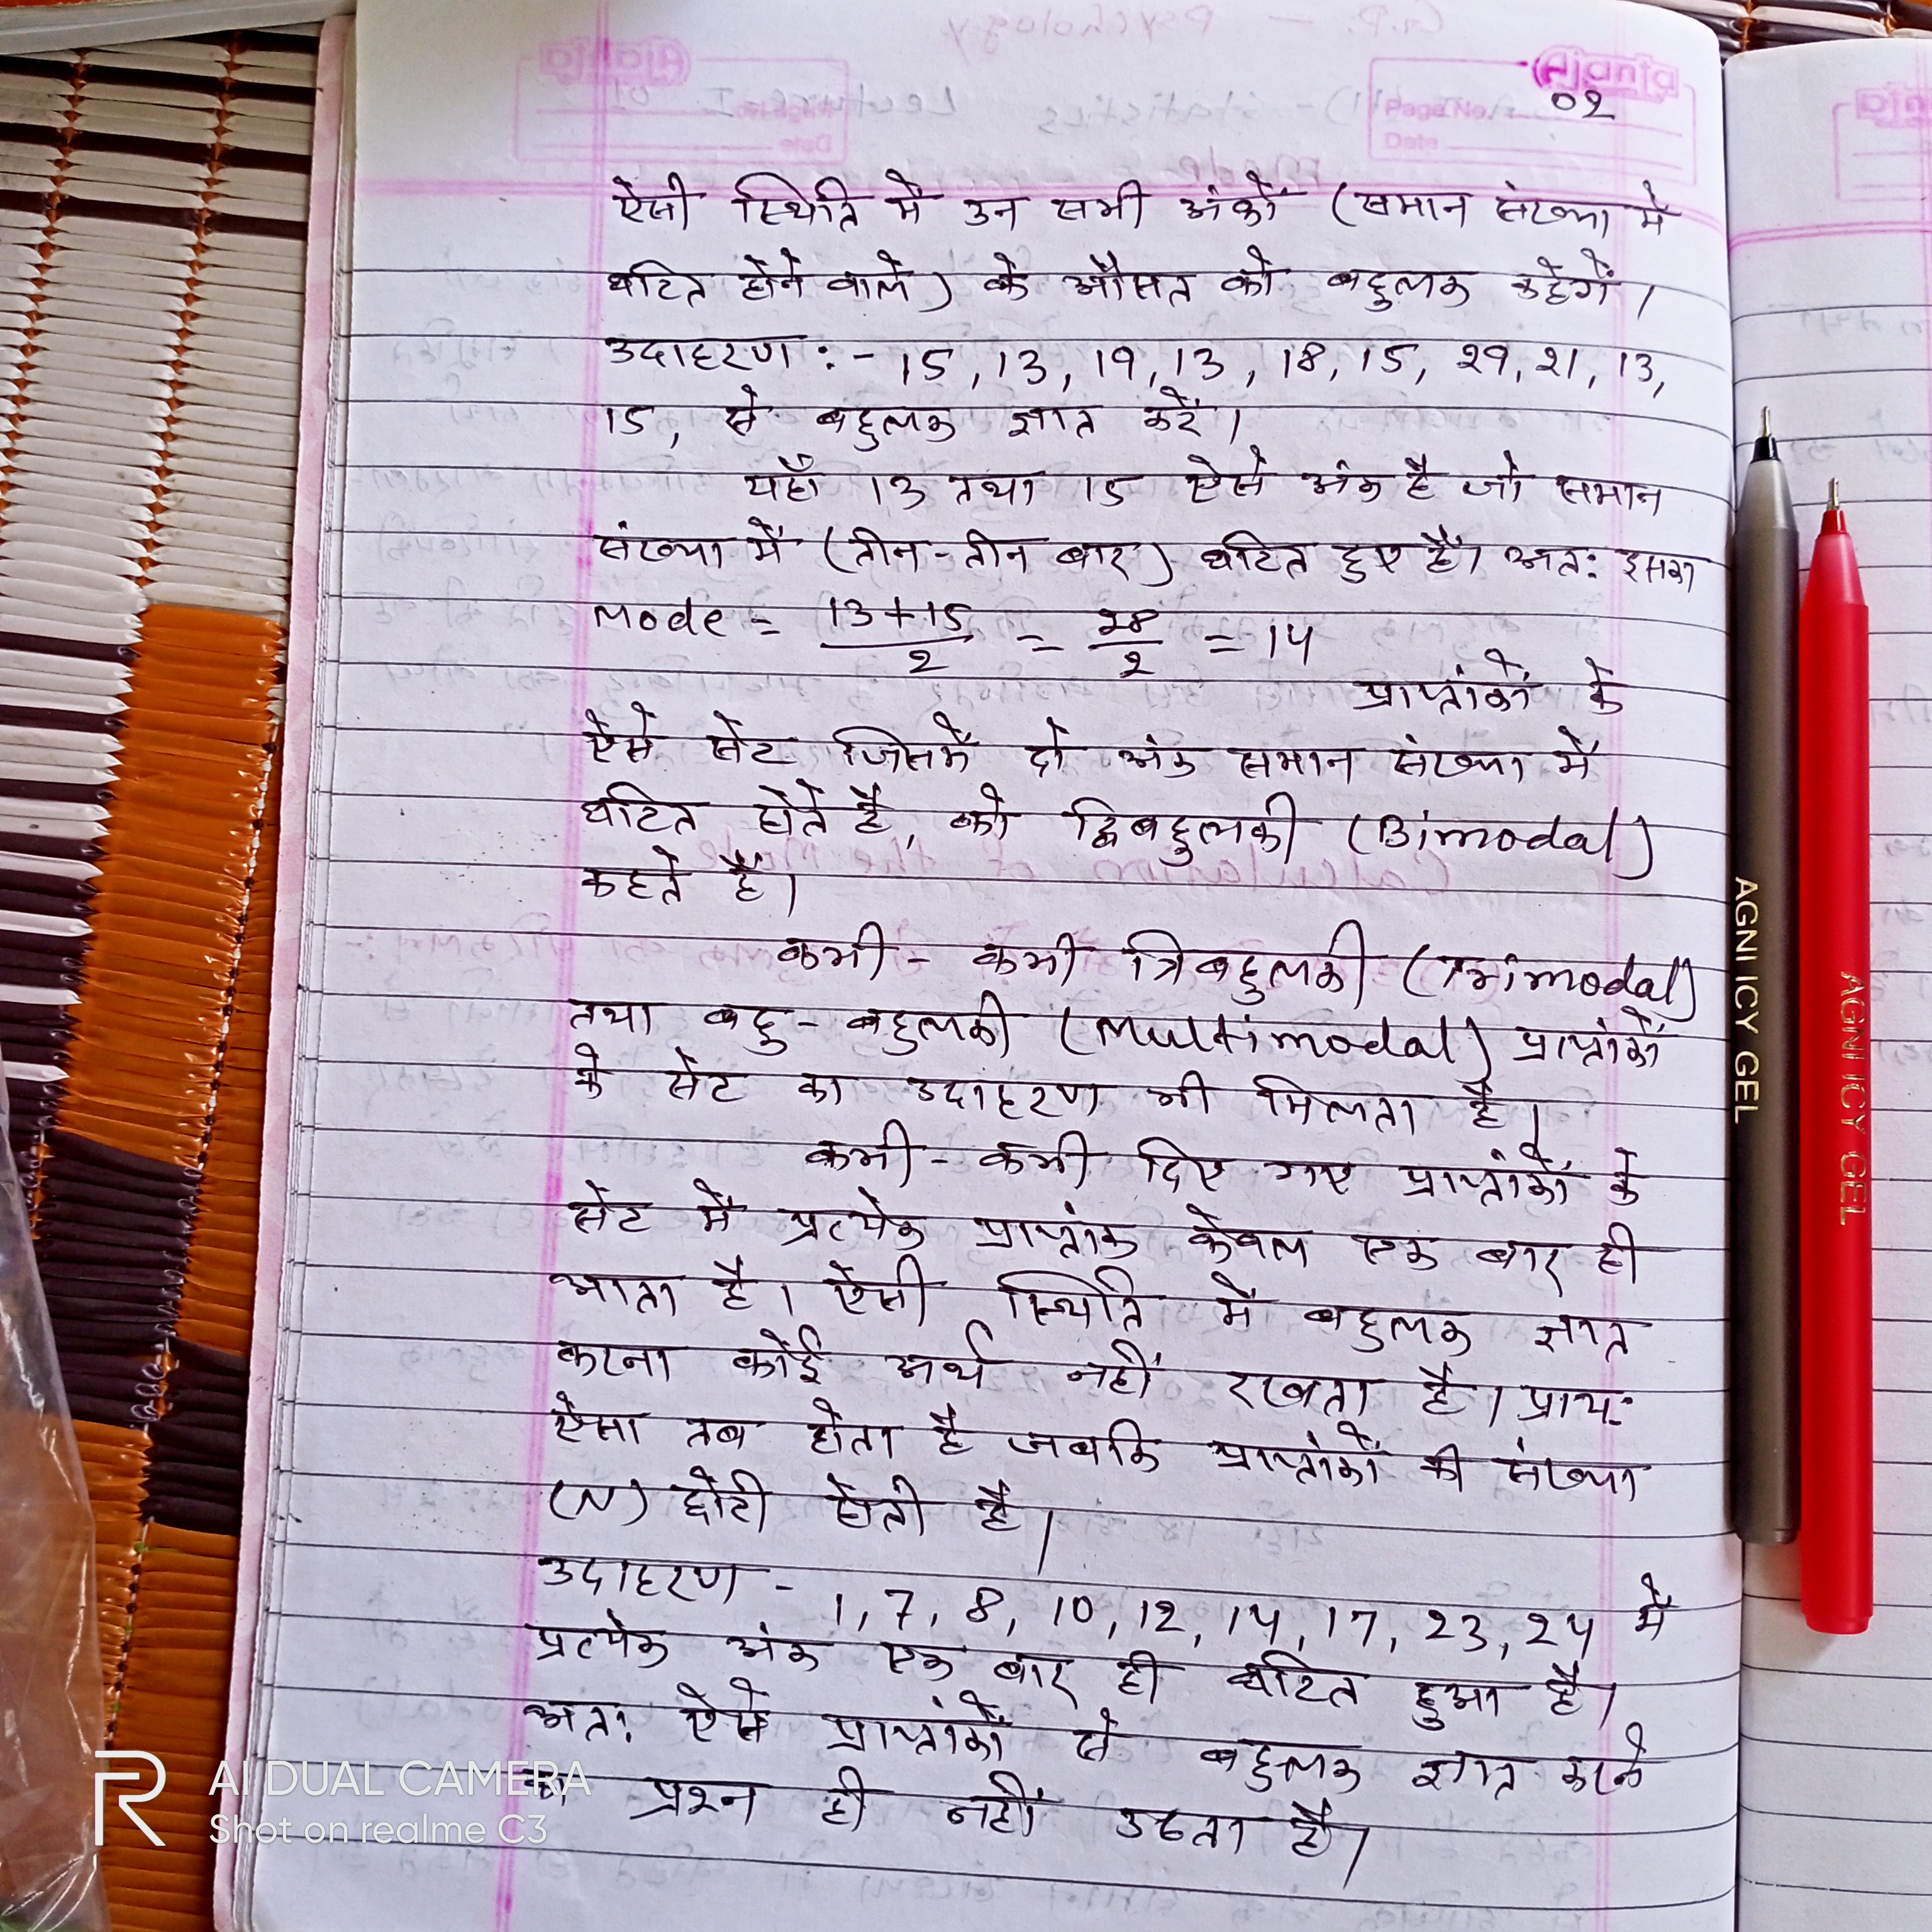 Ajanta
Page No. 02
Date
ऐसी स्थिति में उन सभी अंकों (समान संख्या में
घटित होने वाले) के औसत को बहुलक कहेगें।
उदाहरण :- 15, 13, 19, 13, 18, 15, 29, 21, 13,
15, से बहुलक ज्ञात करें।
यहाँ 13 तथा 15 ऐसे अंक है जो समान
संख्या में (तीन-तीन बार) घटित हुए हैं। अतः इसका
Mode = 13+15/2 = 28/2 = 14
प्राप्तांकों के
ऐसे सेट जिसमें दो अंक समान संख्या में
घटित होते है, को द्विबहुलकी (Bimodal)
कहते हैं।
कभी - कभी त्रिबहुलकी (Trimodal)
तथा बहु - बहुलकी (Multimodal) प्राप्तांकों
के सेट का उदाहरण भी मिलता है।
कभी - कभी दिए गए प्राप्तांकों के
सेट में प्रत्येक प्राप्तांक केवल एक बार ही
आता है। ऐसी स्थिति में बहुलक ज्ञात
करना कोई अर्थ नहीं रखता है। प्रायः
ऐसा तब होता है जबकि प्राप्तांकों की संख्या
(N) छोटी होती है।
उदाहरण - 1, 7, 8, 10, 12, 14, 17, 23, 24 में
प्रत्येक अंक एक बार ही घटित हुआ है।
अतः ऐसे प्राप्तांकों से बहुलक ज्ञात करने
का प्रश्न ही नहीं उठता है।
AGNI ICY GEL
AGNI ICY GEL
R
AI DUAL CAMERA
Shot on realme C3